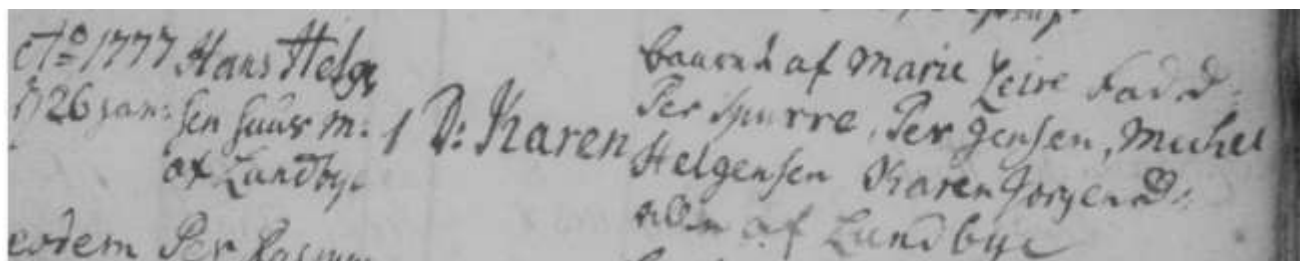 Ao 1777 Hans Helge
26 Jan: sen huus m:
af Lundbye
1 D: Karen
baaren af Marie Leire Fadd:
Per Spurre, Per Jensen, Michel
Helgensen Karen Jørgend:
af Lundbye
eodem Per